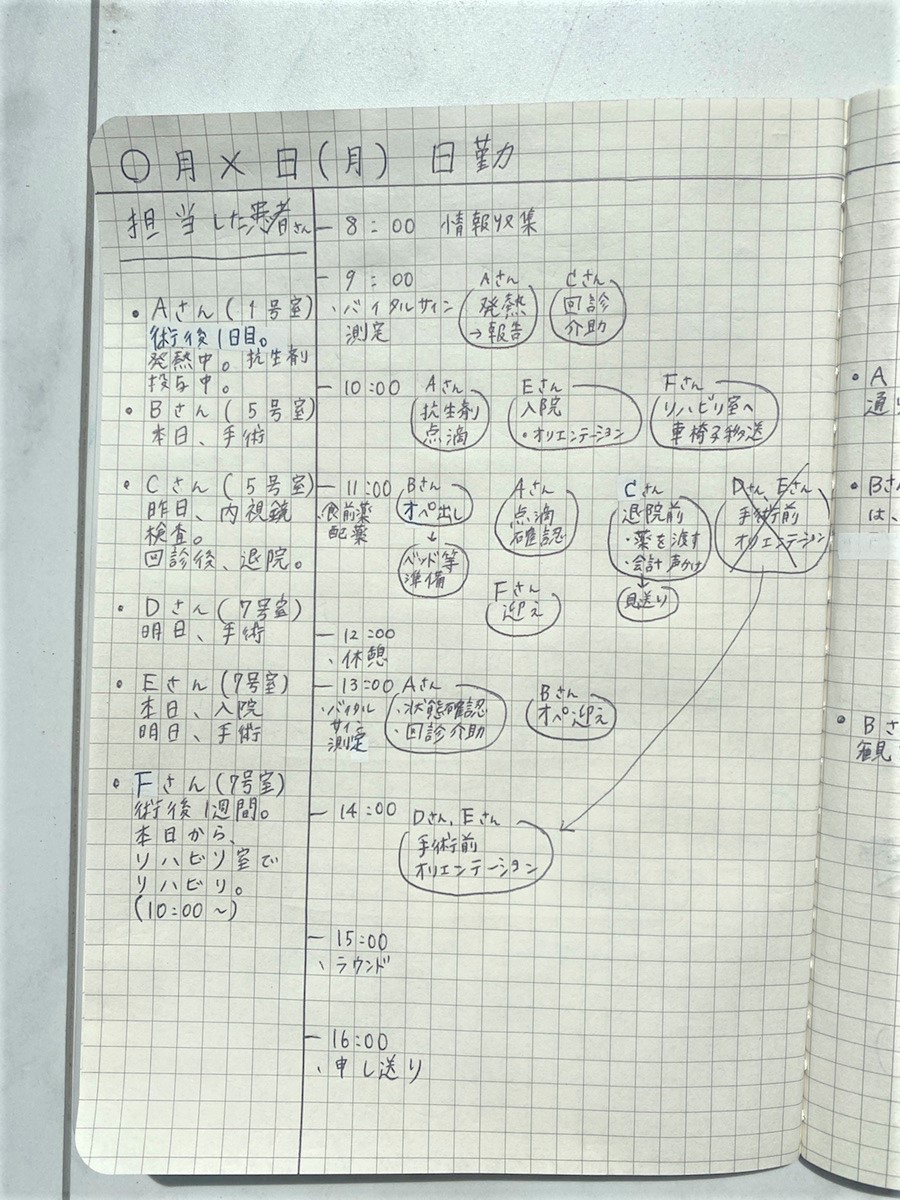 〇月×日(月) 日勤
担当した患者さん
・Aさん(1号室)
術後1日目。
発熱中。抗生剤
投与中。
・Bさん(5号室)
本日、手術
・Cさん(5号室)
昨日、内視鏡
検査。
回診後、退院。
・Dさん(7号室)
明日、手術
・Eさん(7号室)
本日、入院
明日、手術
・Fさん(7号室)
術後1週間。
本日から、
リハビリ室で
リハビリ。
(10:00~)
8:00 情報収集
9:00
・バイタルサイン
測定
Aさん
発熱
→報告
Cさん
回診
介助
10:00
Aさん
抗生剤
点滴
Eさん
入院
・オリエンテーション
Fさん
リハビリ室へ
車椅子移送
11:00
・食前薬
配薬
Bさん
オペ出し
↓
ベッド等
準備
Aさん
点滴
確認
Fさん
迎え
Cさん
退院前
・薬を渡す
・会計声かけ
↓
見送り
Dさん、Eさん
手術前
オリエンテーション
12:00
・休憩
13:00
・バイタル
サイン
測定
Aさん
・状態確認
・回診介助
Bさん
オペ迎え
14:00
Dさん、Eさん
手術前
オリエンテーション
15:00
・ラウンド
16:00
・申し送り
・A
通
・Bさ
は、
・Bさ
観